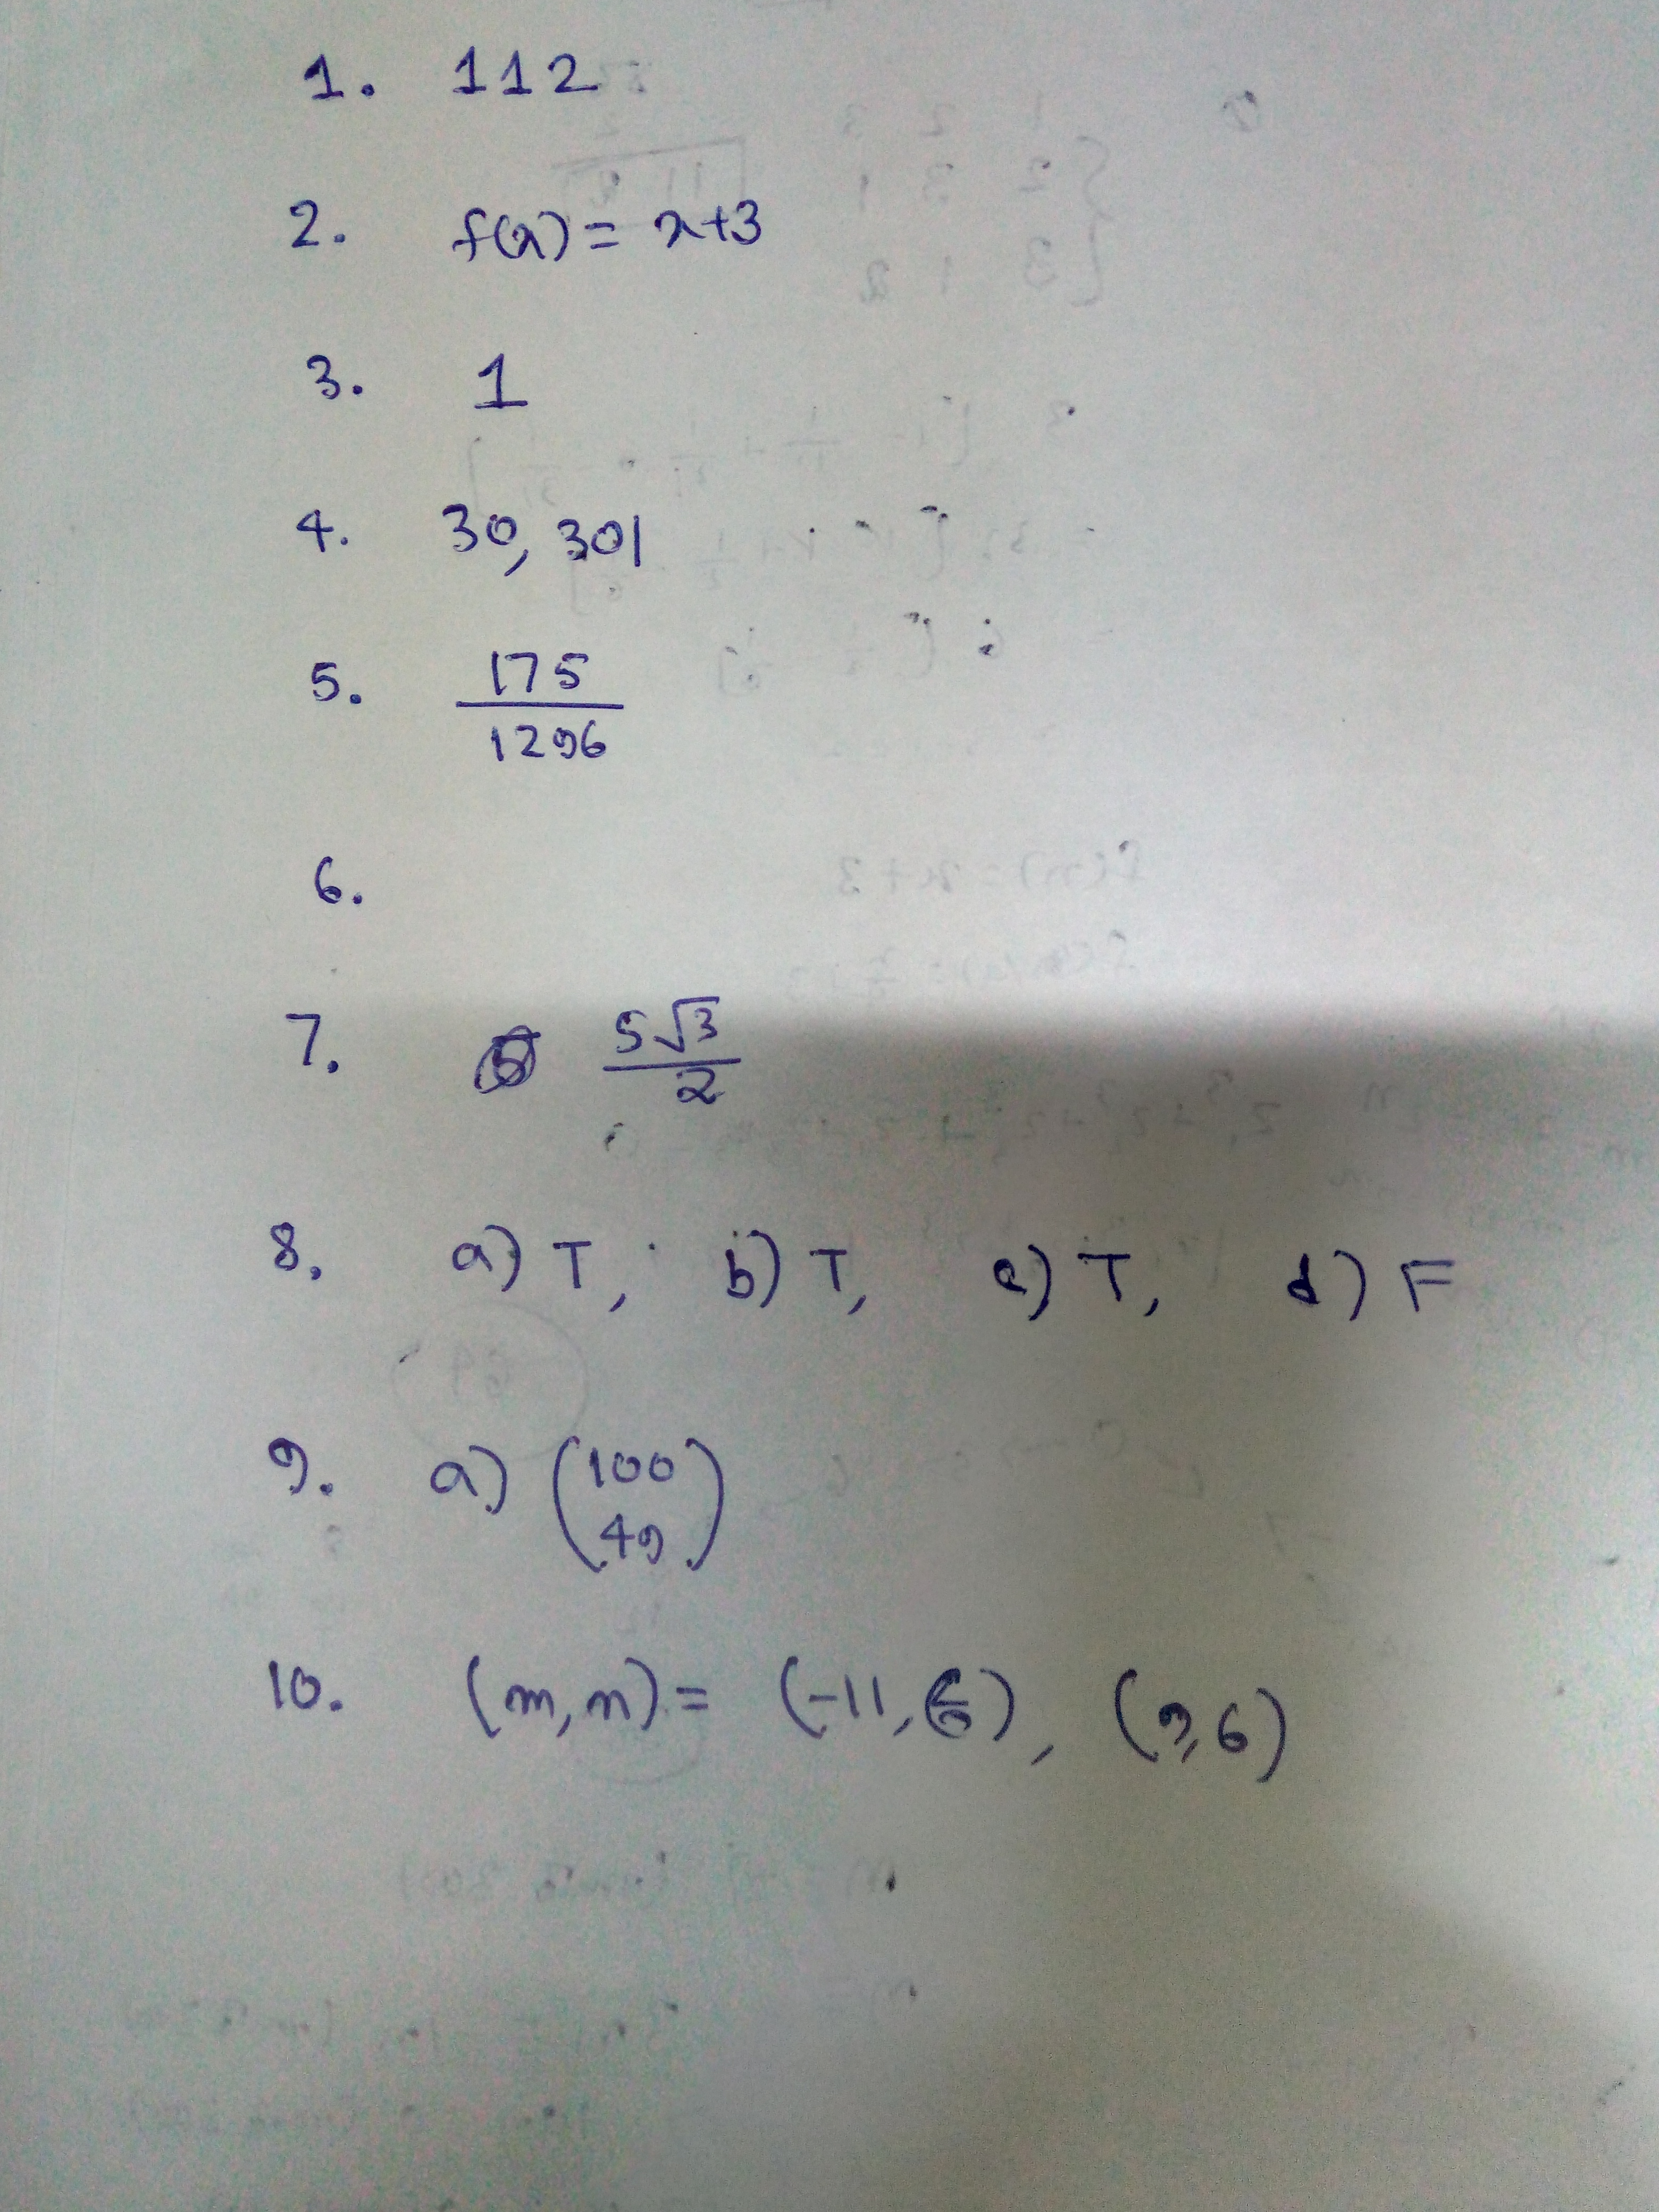 1. 112
2. f(x) = x+3
3. 1
4. 30, 301
5. 175/1296
6.
7. 5√3/2
8. a) T, b) T, c) T, d) F
9. a) (100
49)
10. (m,n) = (-11,6), (9,6)